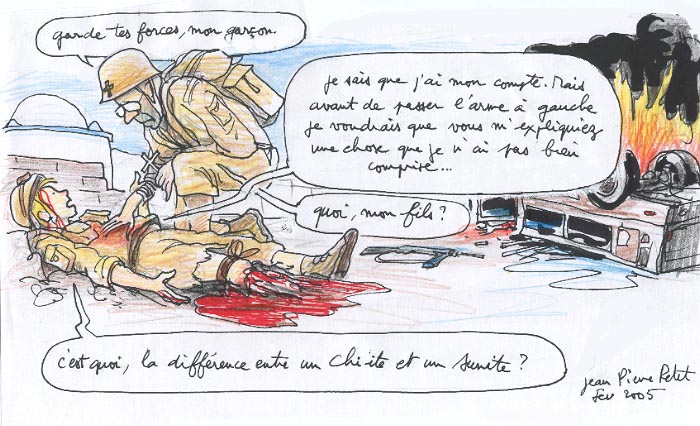 garde tes forces, mon garçon.
je sais que j'ai mon compte. Mais
avant de passer l'arme à gauche
je voudrais que vous m'expliquiez
une chose que je n'ai pas bien
comprise...
quoi, mon fils ?
c'est quoi, la différence entre un Chi-ite et un Sunite ?
Jean Pierre Petit
fev 2005